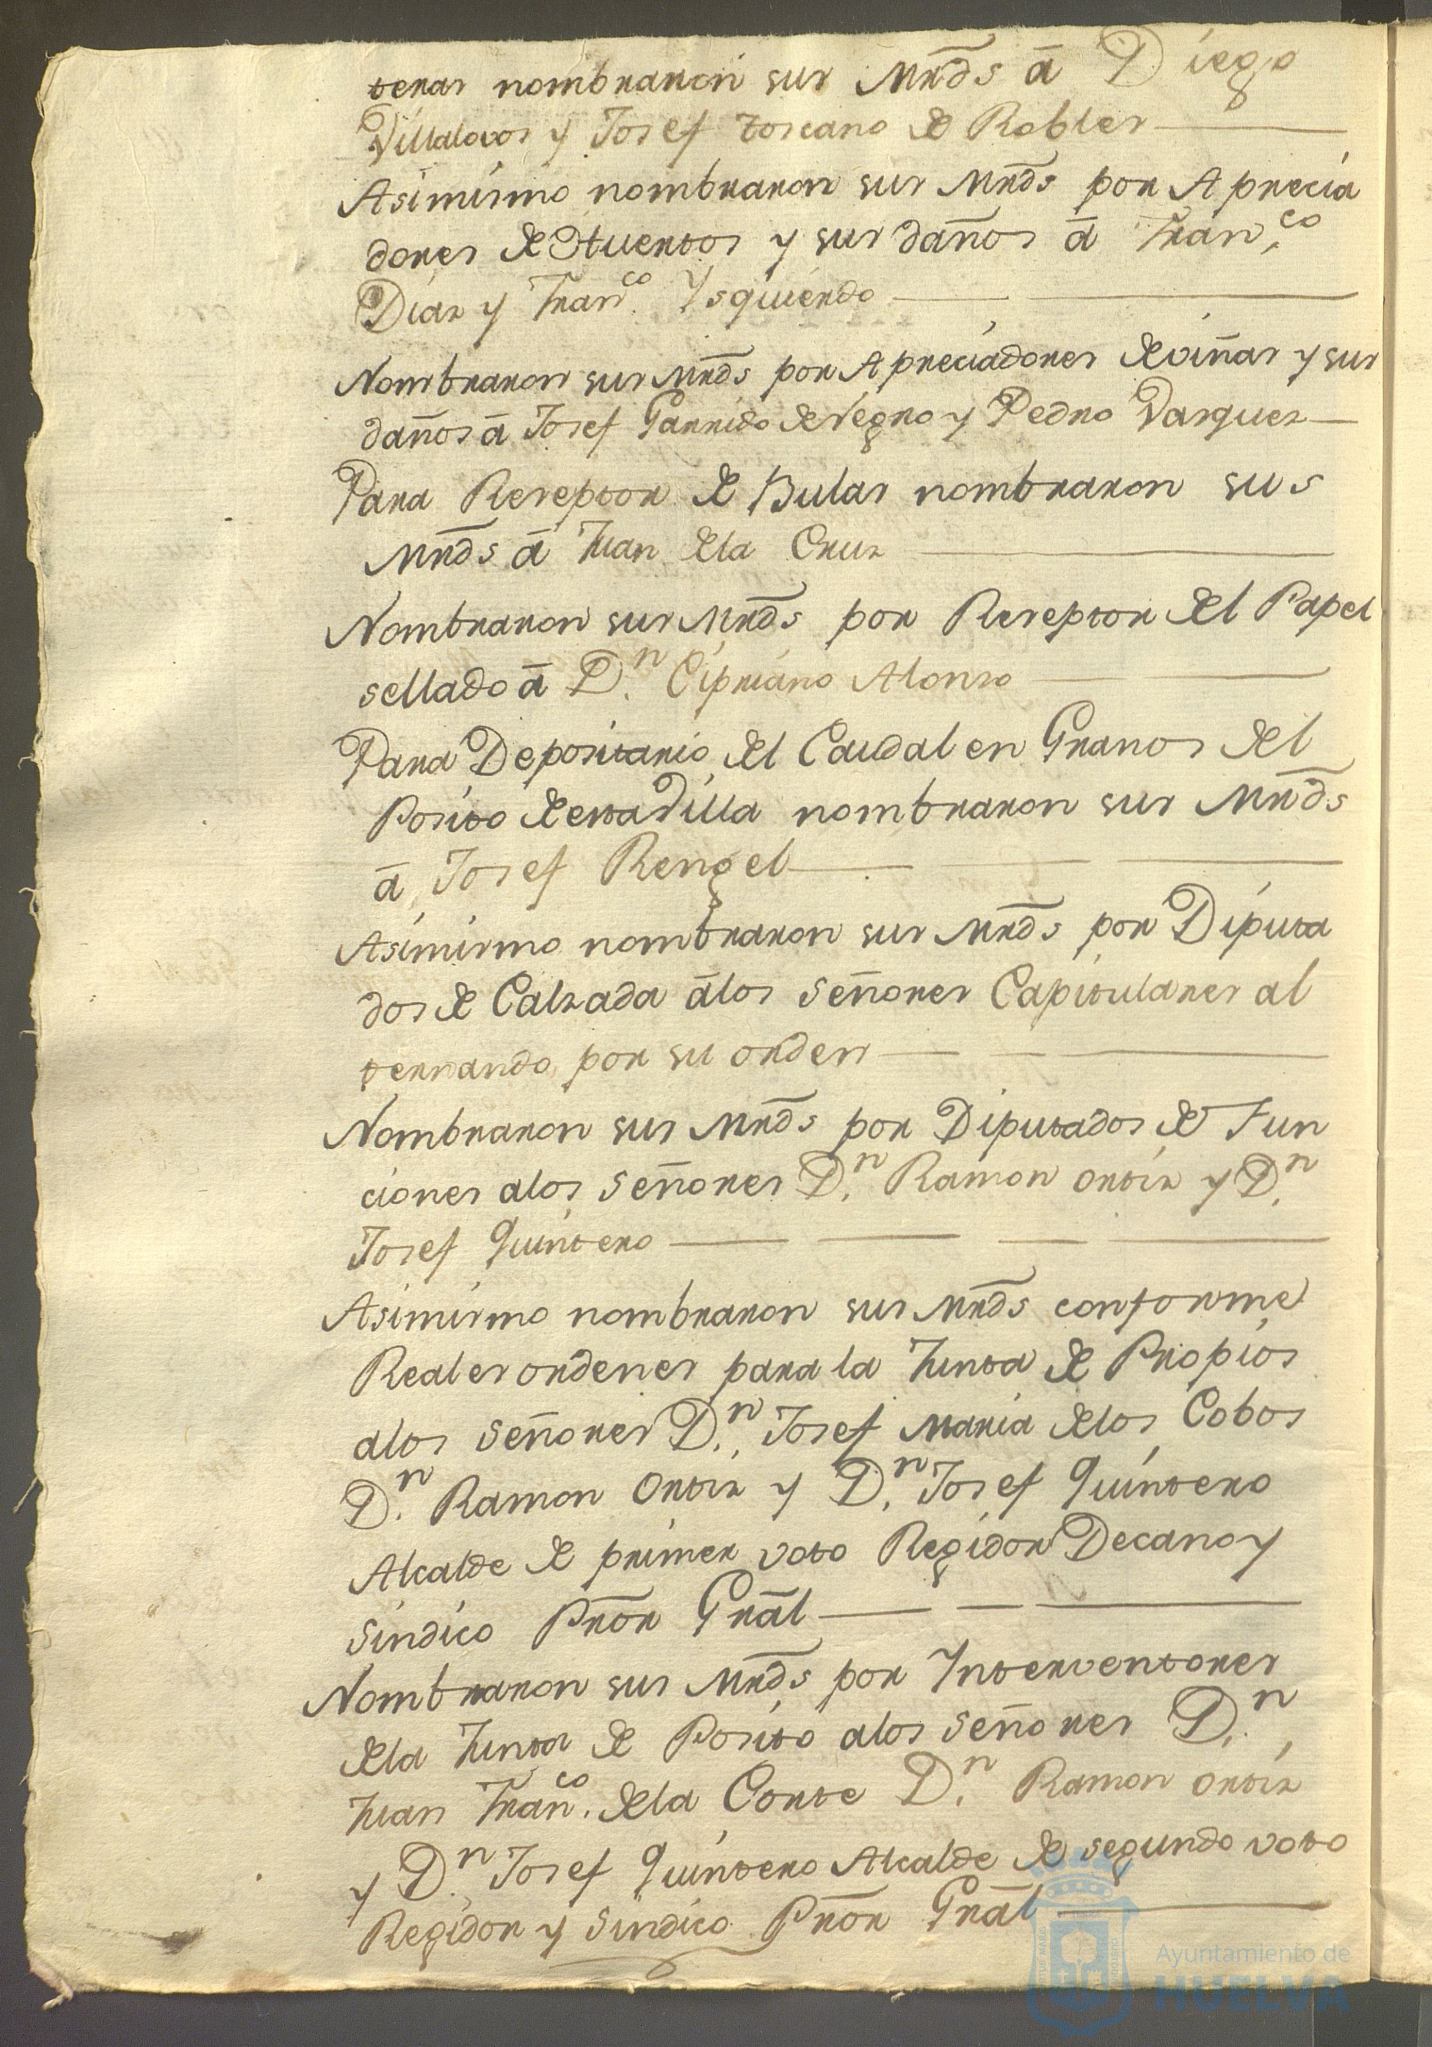 teras nombraron sus Mrds â Diego
Villalovos y Josef toscano de Robles
Asimismo nombraron sus Mrds por Aprecia
dores de Huertos y sus daños â Fran.co
Diaz y Fran.co Ysquierdo
Nombraron sus Mrds por Apreciadores de viñas y sus
daños â Josef Garrido de Negro y Pedro Vasquez
Para Reseptor de Bulas nombraron sus
Mrds â Juan de la Cruz
Nombraron sus Mrds por Reseptor del Papel
sellado â D.n Cipriano Alonso
Para Depositario del Caudal en Granos del
Posito de esta Villa nombraron sus Mrds
â Josef Rengel
Asimismo nombraron sus Mrds por Diputa
dos de Calzada âlos señores Capitulares al
ternando por su orden
Nombraron sus Mrds por Diputados de Fun
ciones alos señores D.n Ramon Ortiz y D.n
Josef Quintero
Asimismo nombraron sus Mrds conforme
Reales ordenes para la Junta de Propios
alos señores D.n Josef Maria delos Cobos
D.n Ramon Ortiz y D.n Josef Quintero
Alcalde de primer voto Regidor Decano y
sindico Pror Gral
Nombraron sus Mrds por Interventores
dela Junta de Posito alos señores D.n
Juan Fran.co dela Corte D.n Ramon Ortiz
y D.n Josef Quintero Alcalde de segundo voto
Regidor y sindico Pror Gral
Ayuntamiento de
HUELVA